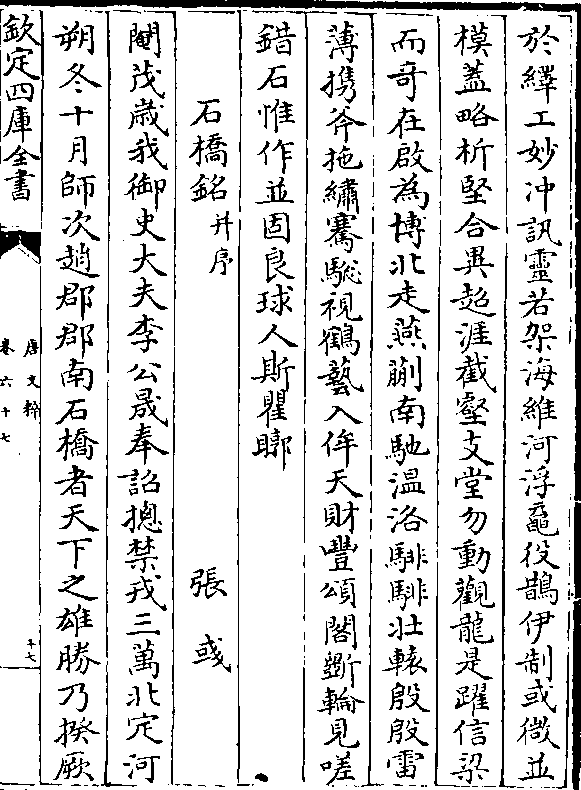 於繹工妙沖訊靈若架海維河浮黿役鵲伊制或微並
模蓋略析堅合異超涯截壑支堂勿動觀龍是躍信梁
而奇在啟為博北走燕蒯南馳溫洛騑騑壯轅殷殷雷
薄攜斧拖繡騫驄視鶴藝入侔天財豐頌閣斲輪見嗟
錯石惟作並固良球人斯瞿䀴
石橋銘并序 張彧
閹茂歲我御史大夫李公晟奉詔摠禁戎三萬北定河
朔冬十月師次趙郡郡南石橋者天下之雄勝乃揆厥
欽定四庫全書
唐文粹
卷六十七
十七